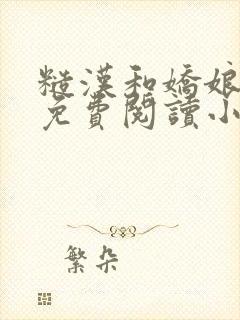 糙漢和嬌娘
免費閱讀小
繁朵